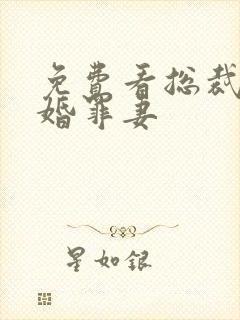 免费看总裁
婚罪妻
星如银